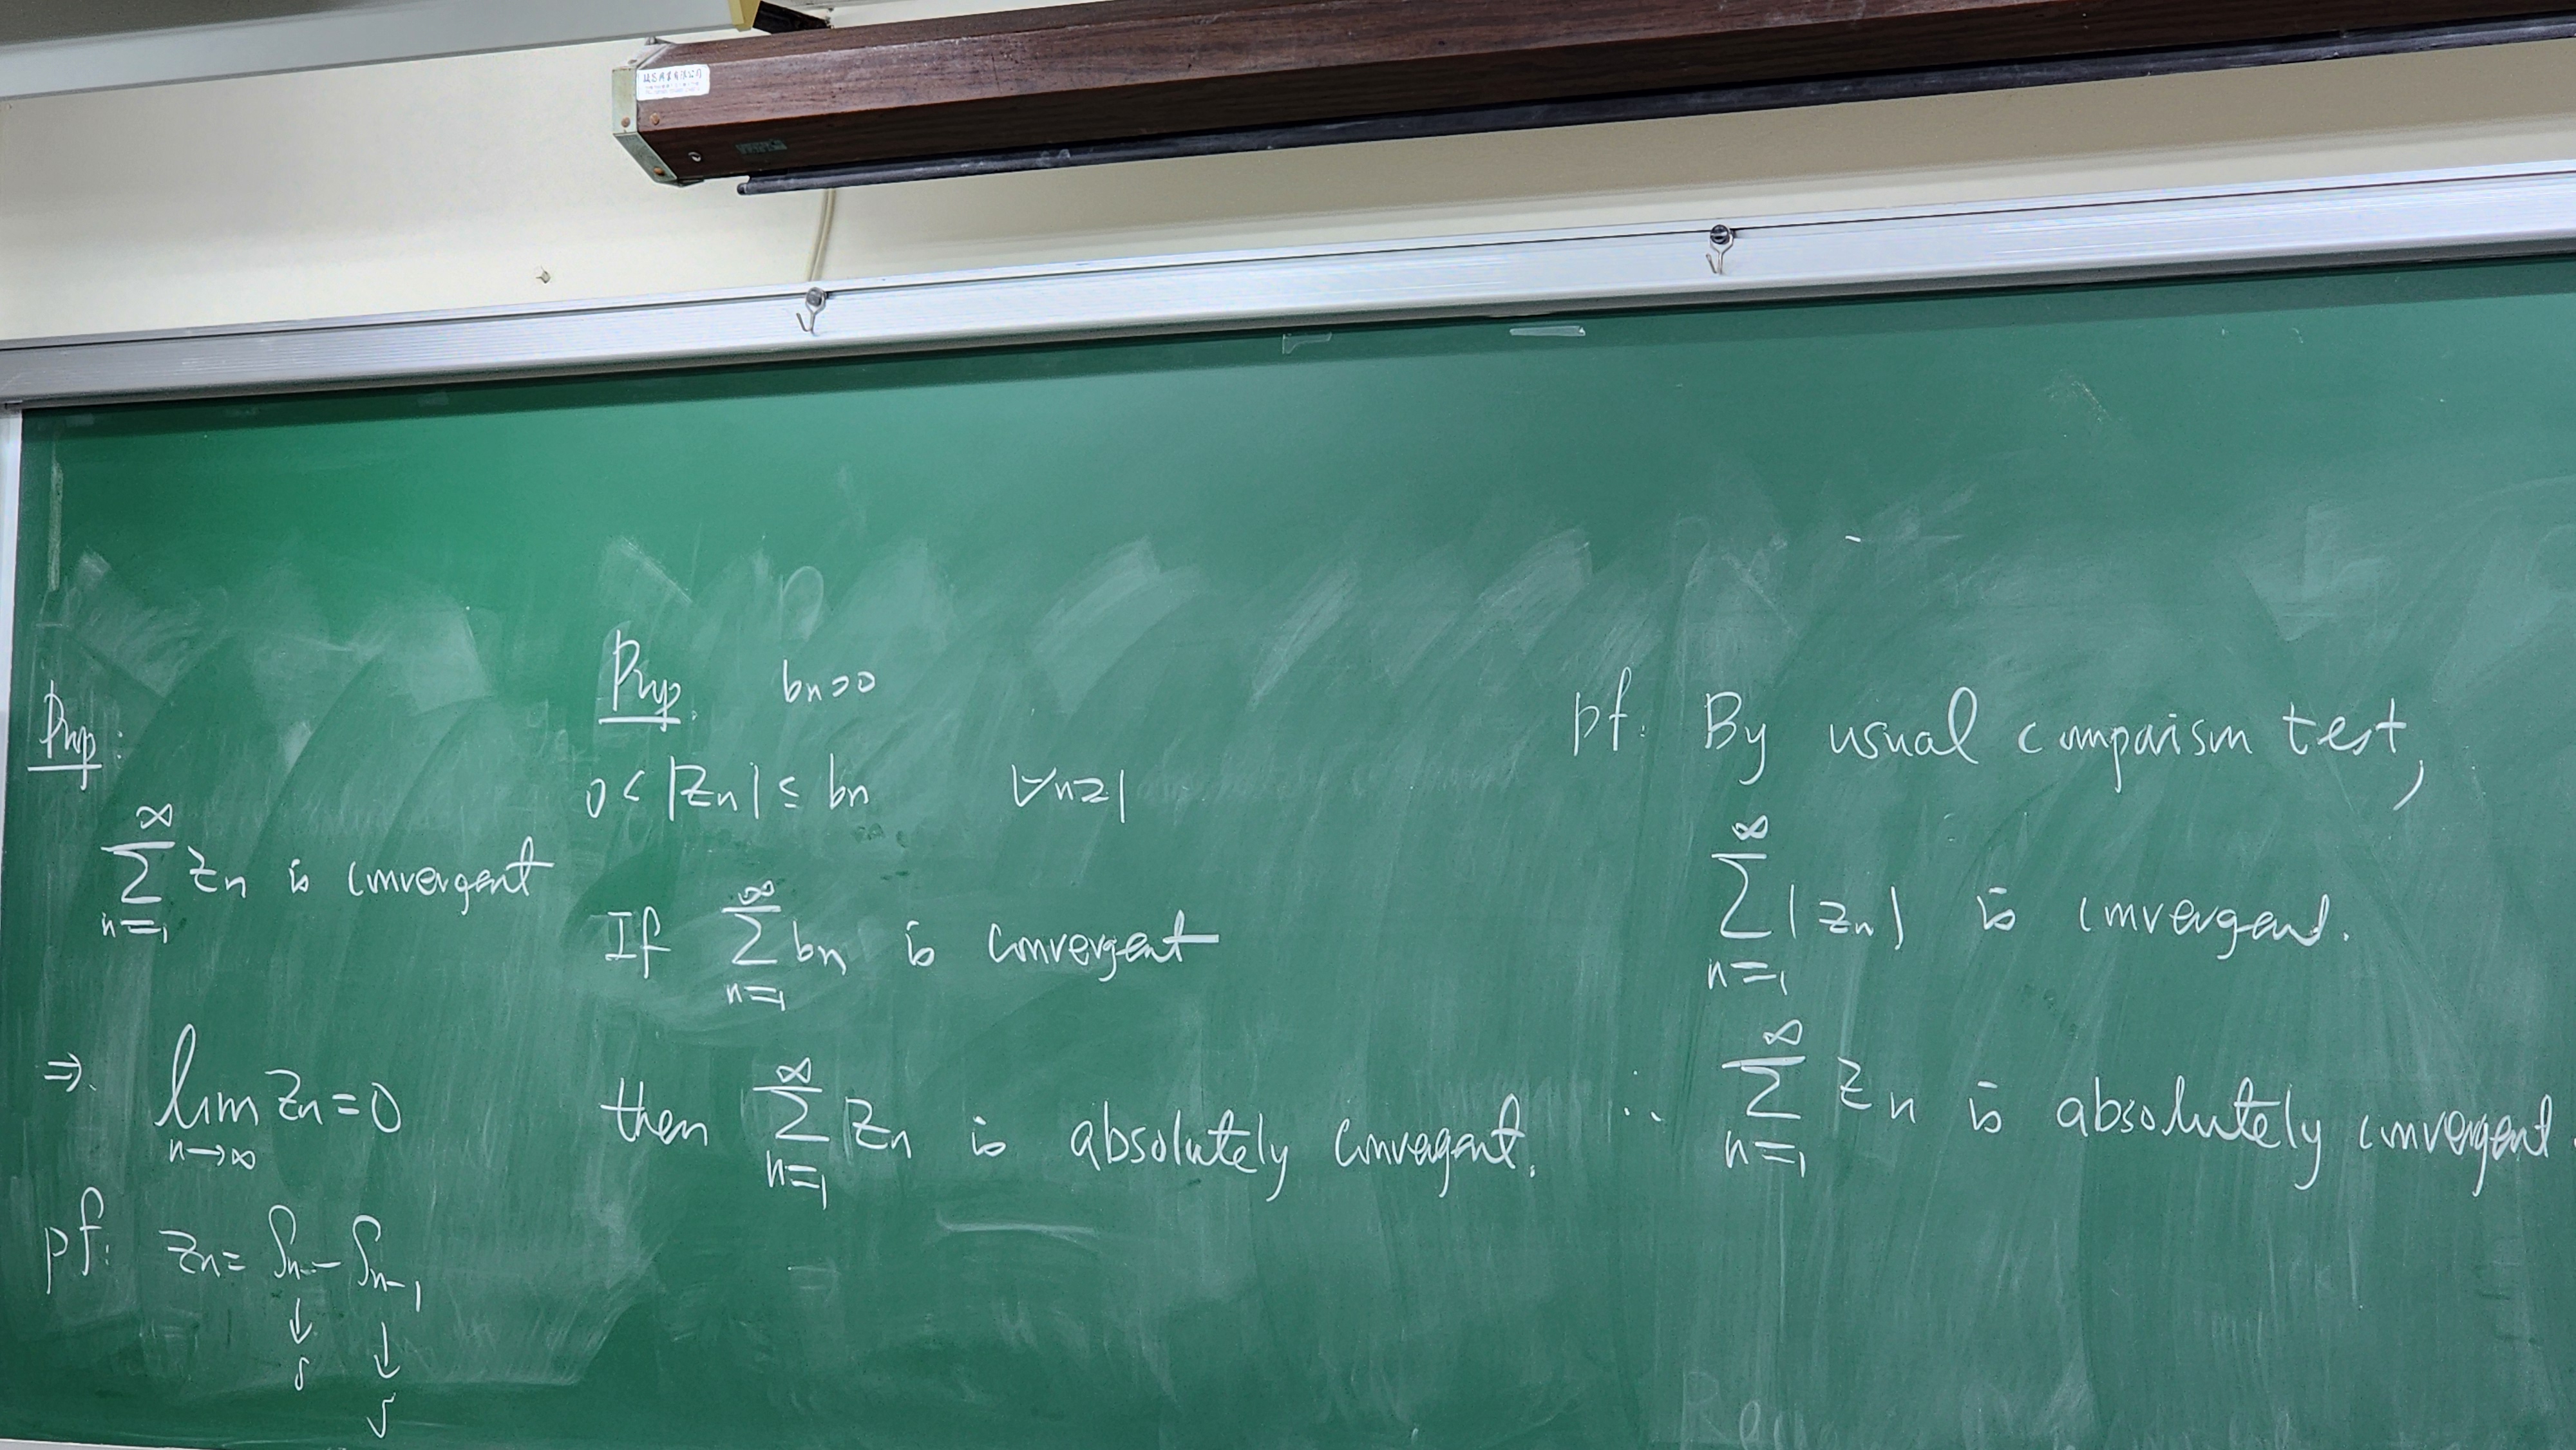 Prop:
∞
∑ zn is convergent
n=1
⇒ lim zn = 0
n→∞
pf: zn = Sn - Sn-1
↓ ↓
S S
Prop. bn>0
0 < |zn| ≤ bn ∀n≥1
∞
If ∑ bn is convergent
n=1
∞
then ∑ zn is absolutely convergent.
n=1
pf: By usual comparism test,
∞
∑ |zn| is convergent.
n=1
∞
∴ ∑ zn is absolutely convergent
n=1